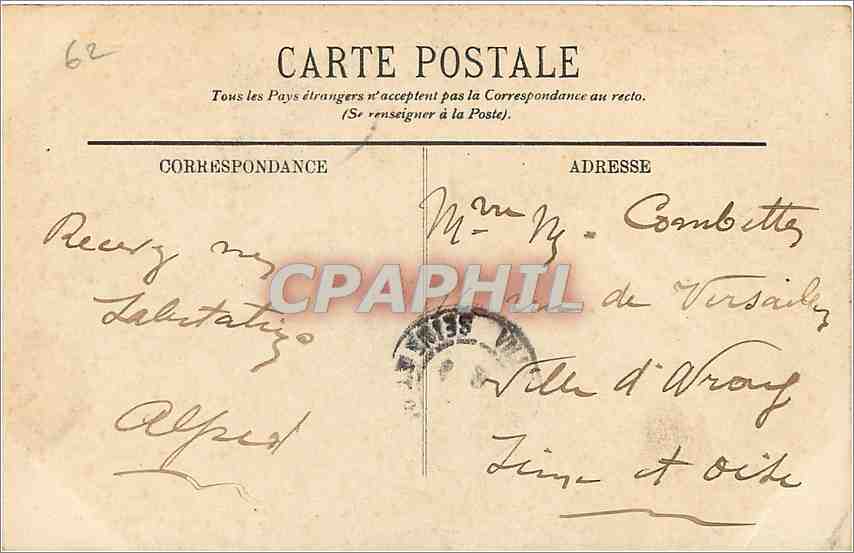 62
CARTE POSTALE
Tous les Pays étrangers n'acceptent pas la Correspondance au recto.
(Se renseigner à la Poste).
CORRESPONDANCE
ADRESSE
Recevez mes
Salutations
Alfred
Mme M. Combettes
rue de Versailles
Ville d'Avray
Seine et Oise
CPAPHIL
SEINE